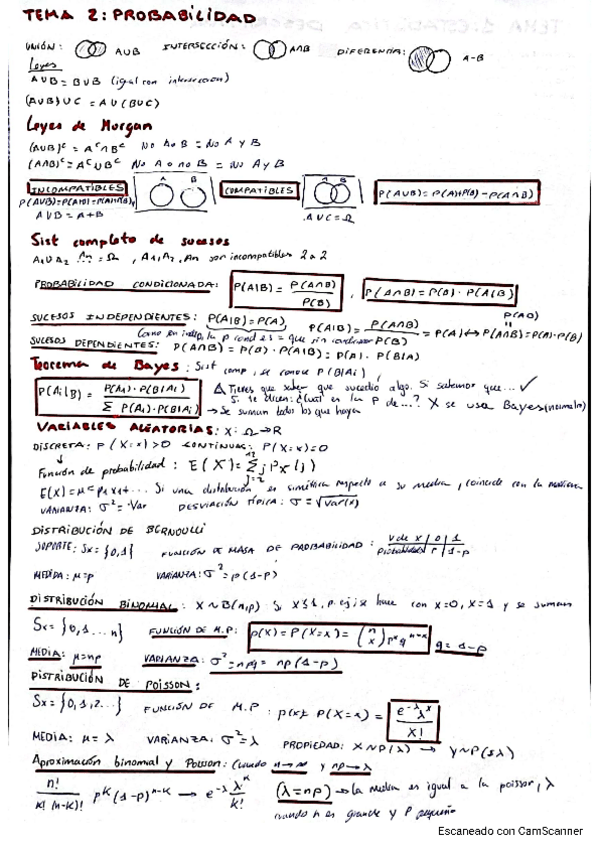 TEMA 2: PROBABILIDAD
UNIÓN: A∪B INTERSECCIÓN: A∩B DIFERENCIA: A-B
Leyes
A∪B = B∪B (igual con interseccion)
(A∪B)∪C = A∪(B∪C)
Leyes de Morgan
(A∪B)ᶜ = Aᶜ∩Bᶜ No A o B = No A y B
(A∩B)ᶜ = Aᶜ∪Bᶜ No A o no B = No A y B
INCOMPATIBLES A B COMPATIBLES A B P(A∪B) = P(A)+P(B)-P(A∩B)
A∪B = A+B A∪C = Ω
Sist completo de sucesos
son incompatibles 2 a 2
PROBABILIDAD CONDICIONADA: P(A|B) = P(A∩B) / P(B) , P(A∩B) = P(B)·P(A|B)
SUCESOS INDEPENDIENTES: P(A|B) = P(A) P(A|B) = P(A∩B) / P(B) = P(A) ↔ P(A∩B) = P(A)·P(B)
SUCESOS DEPENDIENTES: P(A∩B) = P(B)·P(A|B) = P(A)·P(B|A)
Teorema de Bayes: Sist comp, se conoce P(B|Ai)
P(Ai|B) = P(Ai)·P(B|Ai) / Σ P(Ai)·P(B|Ai)
Tienes que saber que sucedió algo. Si sabemos que... ✓
Si te dicen: ¿Cual es la P de...? X se usa Bayes (normalm)
→ Se suman todos los que hayan
VARIABLES ALEATORIAS: X: Ω→R
DISCRETA: P(X=x)>0 CONTINUA: P(X=x)=0
Función de probabilidad: E(X) =
E(X)=μ= Si una distribución es simétrica respecto a su media, coincide con la mediana
VARIANZA: σ² = Var DESVIACIÓN TÍPICA: σ = √Var(x)
DISTRIBUCIÓN DE BERNOULLI
SOPORTE: Sx = {0,1} FUNCIÓN DE MASA DE PROBABILIDAD: V de X | 0 | 1
Probabilidad | P | 1-P
MEDIA: μ=p VARIANZA: σ² = p(1-p)
DISTRIBUCIÓN BINOMIAL: X~B(n,p) Si X≤1, p. ej; se hace con x=0, x=1 y se suman
Sx = {0,1...n} FUNCIÓN DE M.P: p(x) = P(X=x) = (n x) pˣ qⁿ⁻ˣ q = 1-p
MEDIA: μ=np VARIANZA: σ² = npq = np(1-p)
DISTRIBUCIÓN DE POISSON:
Sx = {0,1,2...} FUNCIÓN DE M.P: p(x): P(X=x) = e^-λ λˣ / X!
MEDIA: μ=λ VARIANZA: σ²=λ PROPIEDAD: X~P(λ) → Y~P(5λ)
Aproximación binomial y Poisson: Cuando n→∞ y np→λ
n! / k!(n-k)! pᵏ(1-p)ⁿ⁻ᵏ → e^-λ λᵏ / k! (λ=np) → la media es igual a la poisson, λ
cuando n es grande y P pequeño
Escaneado con CamScanner